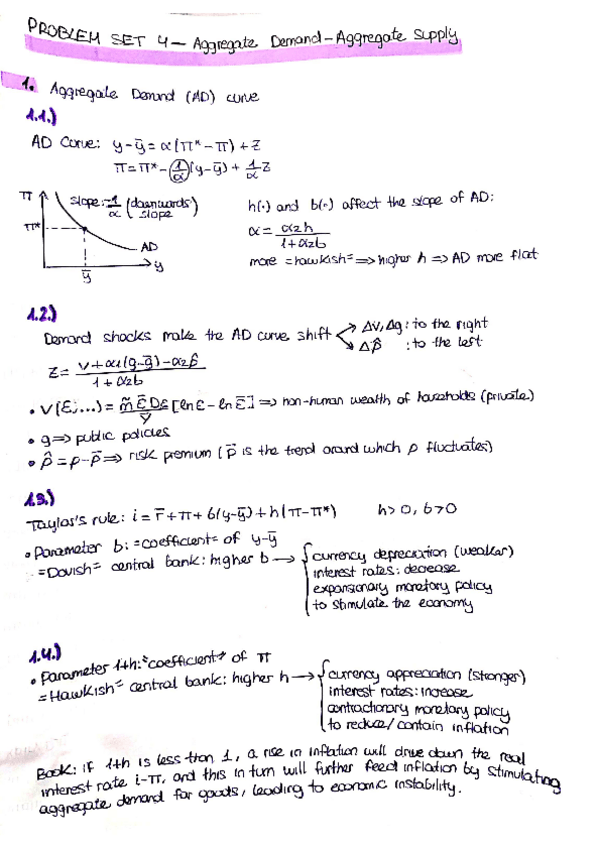 PROBLEM SET 4 – Aggregate Demand – Aggregate Supply
1. Aggregate Demand (AD) curve
1.1.)
AD Curve: y-ȳ = α(π*-π) + z
π = π* - (1/α)(y-ȳ) + 1/α z
π
slope: -1/α (downwards slope)
π*
AD
y
ȳ
h(·) and b(·) affect the slope of AD:
α = α2h / 1+α2b
more =hawkish= ⇒ higher h ⇒ AD more flat
1.2.)
Demand shocks make the AD curve shift
Δv, Δg: to the right
Δp̂ : to the left
z = v+α1(g-ḡ)-α2p̂ / 1+α2b
• v(ε;...) = m̃ĒDε/Ȳ [lnε - lnε̄] ⇒ non-human wealth of households (private)
• g ⇒ public policies
• p̂ = p-p̄ ⇒ risk premium (p̄ is the trend around which p fluctuates)
1.3.)
Taylor's rule: i = r̄ + π + b(y-ȳ) + h(π-π*) h>0, b>0
• Parameter b: =coefficient= of y-ȳ
=Dovish= central bank: higher b →
currency depreciation (weaker)
interest rates: decrease
expansionary monetary policy
to stimulate the economy
1.4.)
• Parameter 1+h: "coefficient" of π
=Hawkish= central bank: higher h →
currency appreciation (stronger)
interest rates: increase
contractionary monetary policy
to reduce/contain inflation
Book: if 1+h is less than 1, a rise in inflation will drive down the real
interest rate i-π, and this in turn will further feed inflation by stimulating
aggregate demand for goods, leading to economic instability.